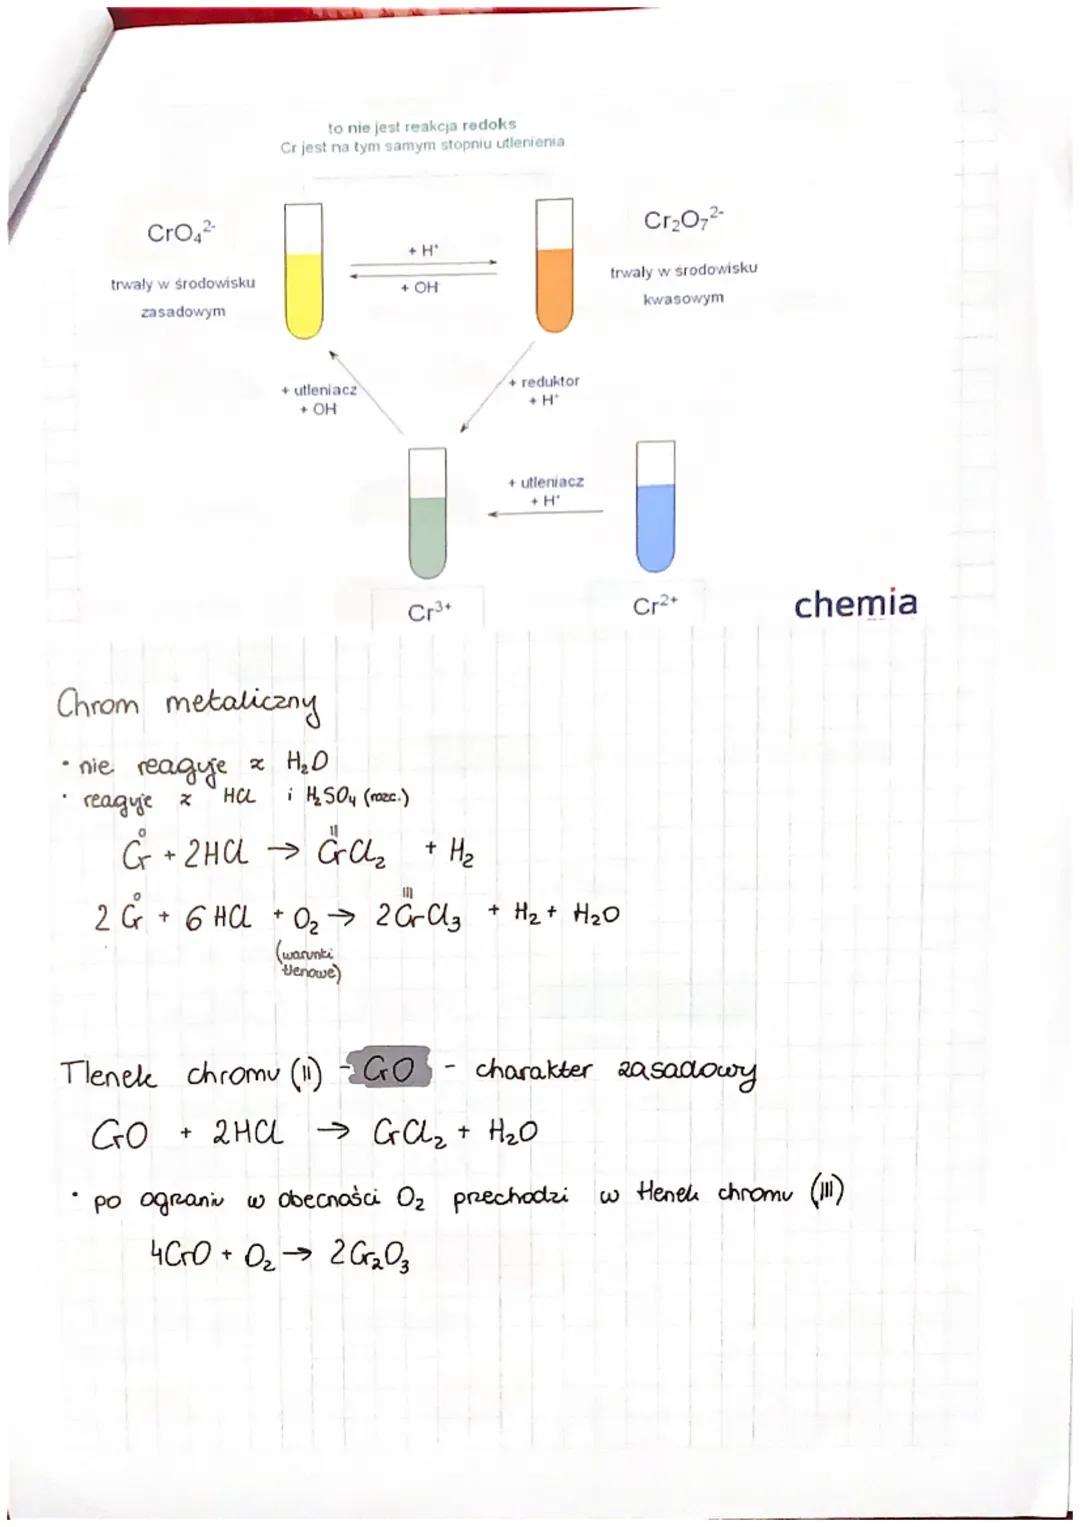 to nie jest reakcja redoks
Cr jest na tym samym stopniu utlenienia
CrO₄²⁻
trwały w środowisku
zasadowym
+ H⁺
+ OH⁻
Cr₂O₇²⁻
trwały w środowisku
kwasowym
+ utleniacz
+ OH⁻
+ reduktor
+ H⁺
+ utleniacz
+ H⁺
Cr³⁺
Cr²⁺
chemia
Chrom metaliczny
• nie reaguje z H₂O
• reaguje z HCl i H₂SO₄ (rozc.)
0 II
Cr + 2HCl → CrCl₂ + H₂
0 III
2 Cr + 6 HCl + O₂ → 2 CrCl₃ + H₂ + H₂O
(warunki
tlenowe)
Tlenek chromu (II) - CrO - charakter zasadowy
CrO + 2HCl → CrCl₂ + H₂O
• po ogrzaniu w obecności O₂ przechodzi w tlenek chromu (III)
4CrO + O₂ → 2Cr₂O₃